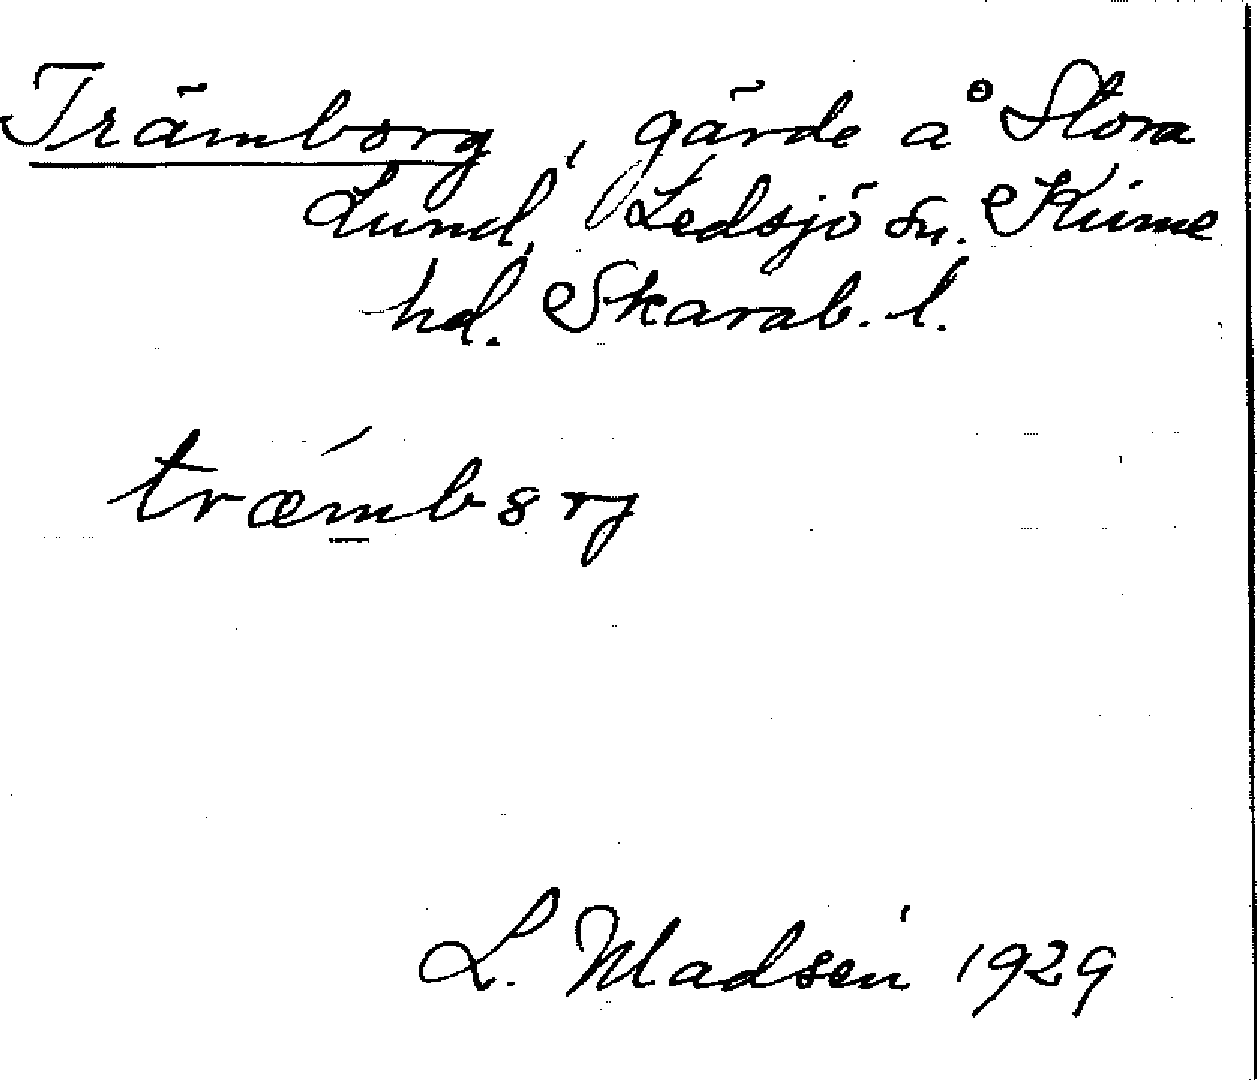 Trämborg, gärde å Stora
Lund, Ledsjö sn. Kinne
hd. Skarab. l.
træ´mbȣrj
L. Madsén 1929